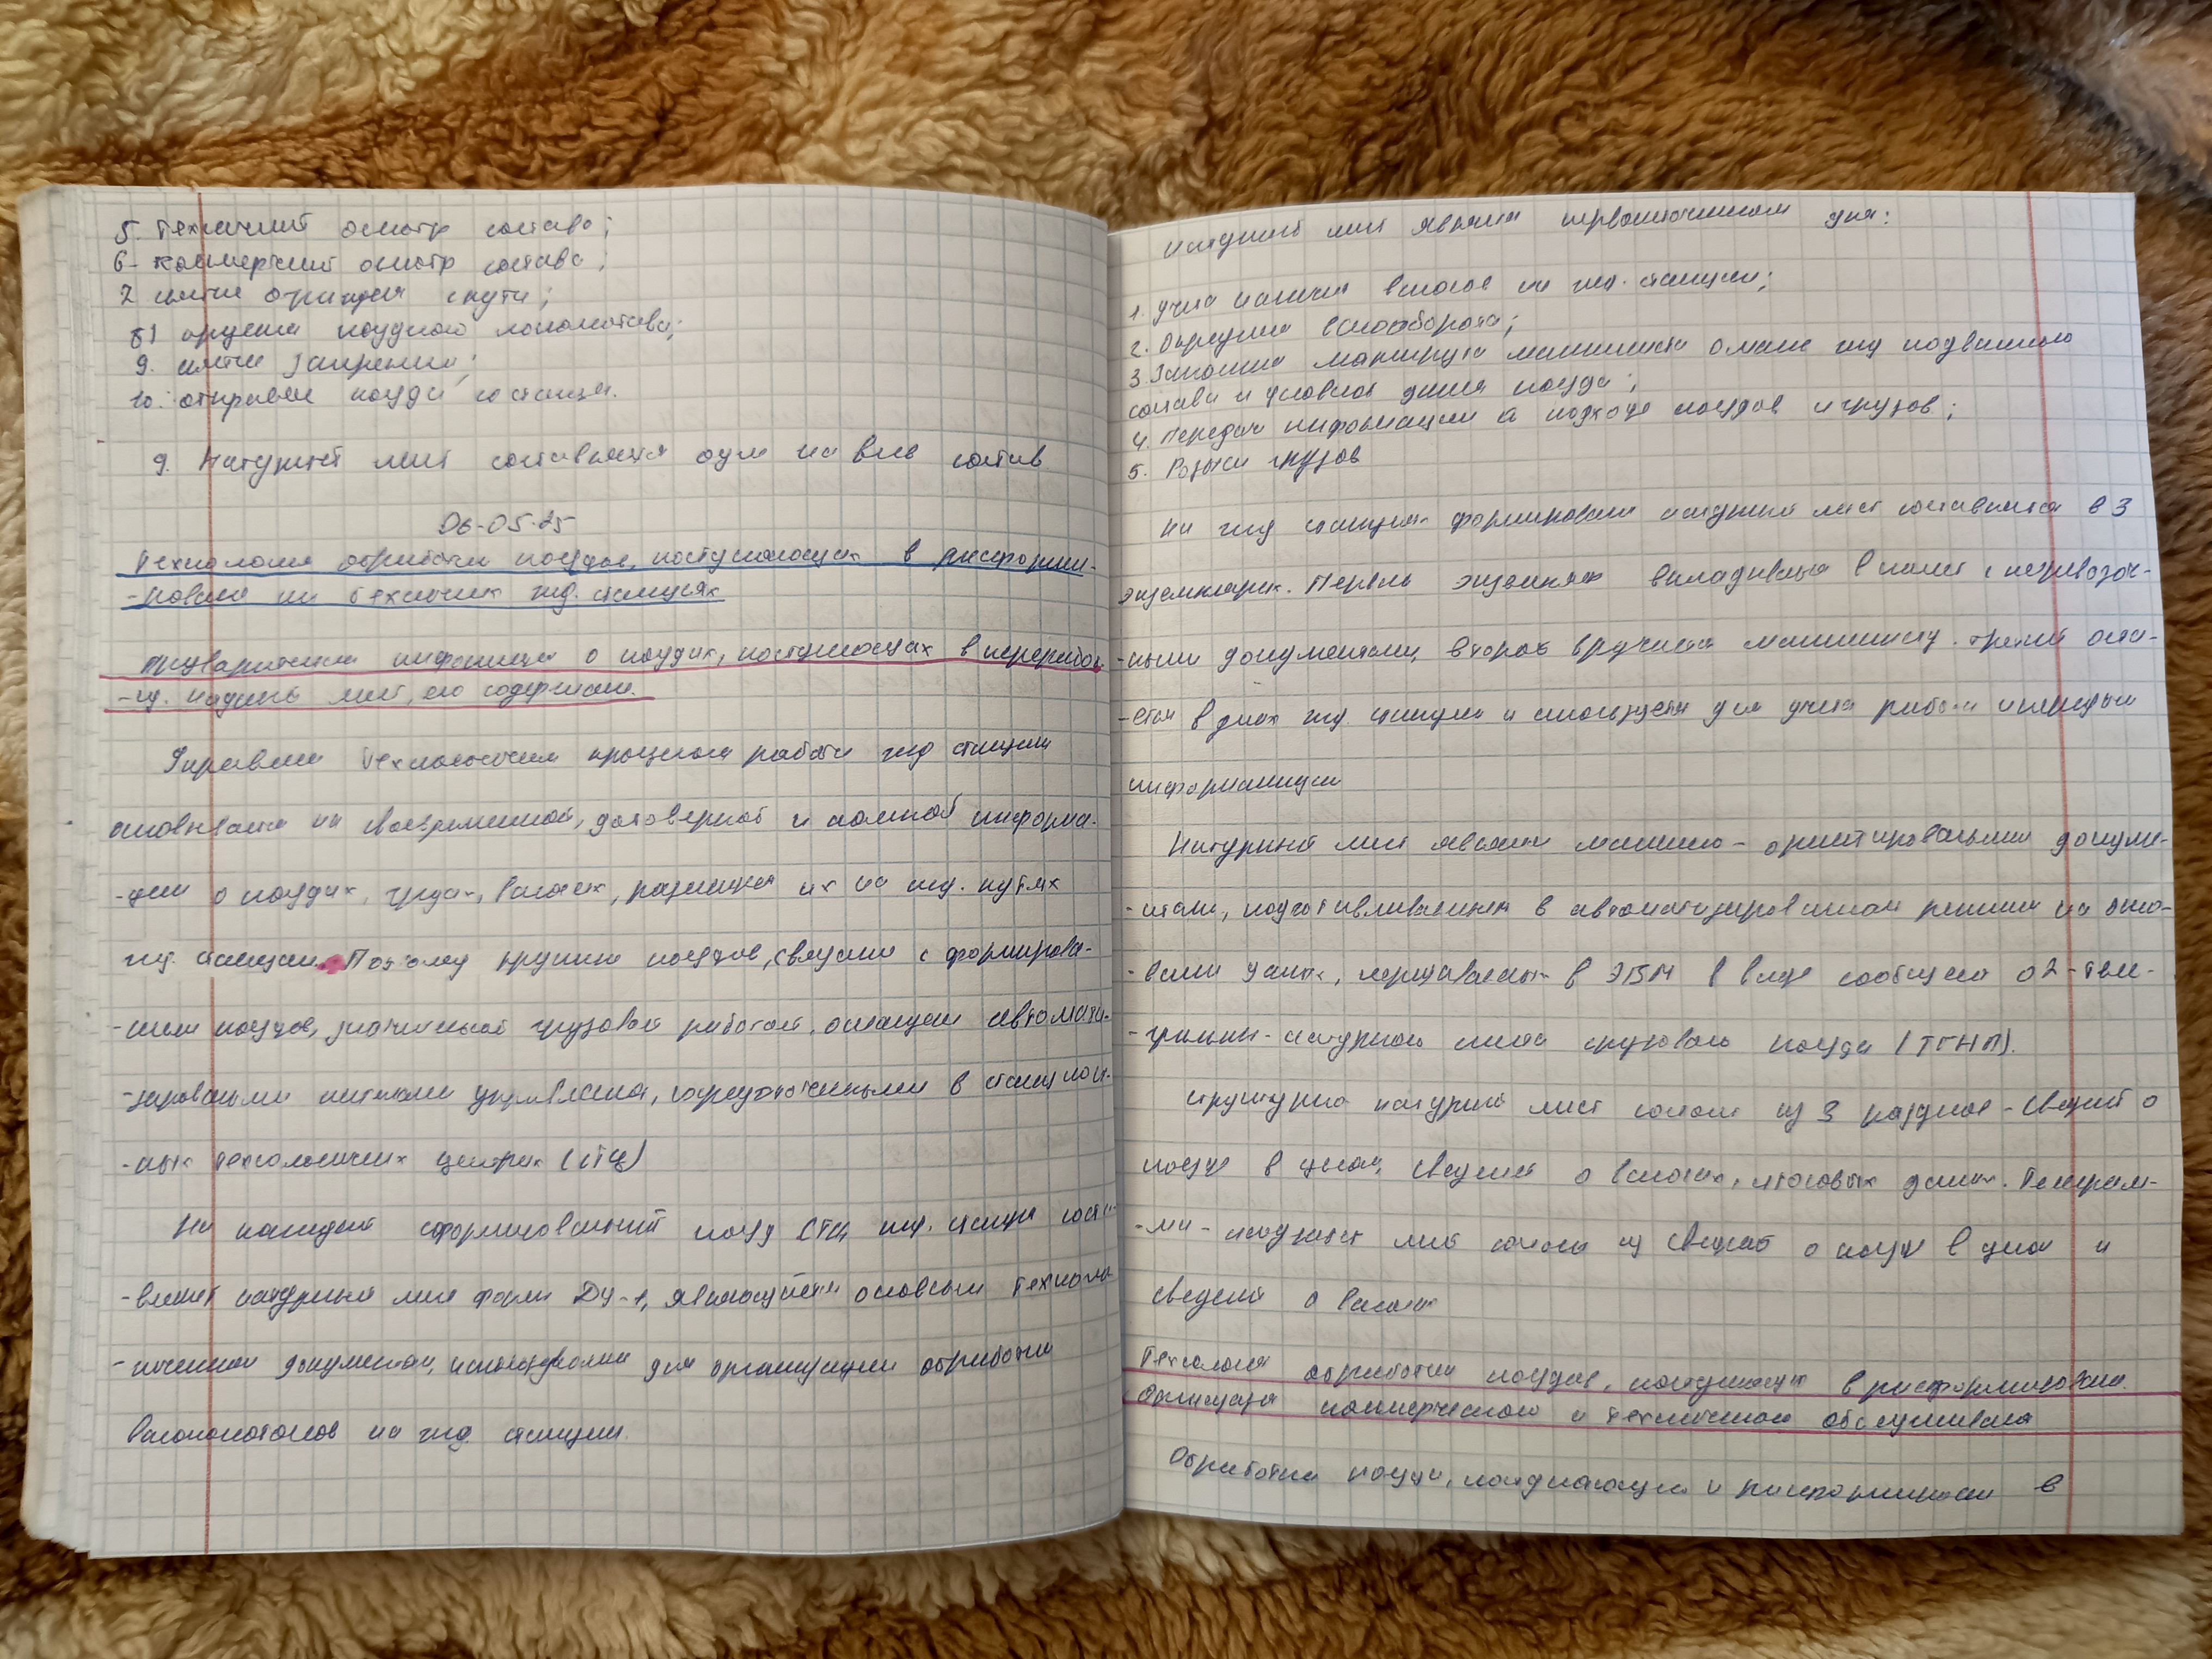 5. Технический осмотр состава;
6. Коммерческий осмотр состава;
7. снятие ограждения с пути;
8) прицепка поездного локомотива;
9. снятие закрепления;
10. отправление поезда со станции.
9. Натурный лист составляется один на весь состав
06-05-25
Технология обработки поездов, поступающих в расформи-
-рование на технических жд. станциях
Предварительная информация о поездах, поступающих в переработ-
-ку. натурный лист, его содержание.
Управление технологическим процессом работы жд станции
основывается на своевременной, достоверной и полной информа-
-ции о поездах, грузах, вагонах, размещения их на жд. путях
жд. станции. Поэтому крупные поездов, связаны с формирова-
-нием поездов, значительной грузовой работой, оснащены автомати-
-зированными системами управления, сосредоточенными в станцион-
-ных технологических центрах (СТЦ)
На каждый сформированный поезд СТЦ жд. станции соста-
-вляет натурный лист формы ДУ-1, являющийся основным техноло-
-гическим документом, используемым для организации обработки
вагонопотоков на жд. станции.
Натурный лист является первоисточником для:
1. учета наличия вагонов на жд. станции;
2. Определения вагонооборота;
3. Заполнения маршрута машиниста о массе жд подвижного
состава и условной длине поезда;
4. Передачи информации о подходе поездов и грузов;
5. Розыска грузов
На жд станциях формирования натурный лист составляется в 3
экземплярах. Первый экземпляр вкладывается в пакет с перевозоч-
-ными документами, второй вручается машинисту. третий оста-
-ется в делах жд. станции и используется для учета работы и передачи
информации
Натурный лист является машинно-ориентированным докуме-
-нтом, подготавливаемым в автоматизированном режиме на осно-
-вании данных, передаваемых в ЭВМ в виде сообщения 02-теле-
-граммы-натурного листа грузового поезда (ТГНЛ).
структурно натурный лист состоит из 3 разделов - сведений о
поезде в целом, сведений о вагонах, итоговых данных. Телеграм-
-ма-натурный лист состоит из сведений о поезде в целом и
сведений о вагонах
Технология обработки поездов, поступающих в расформирование.
Организация коммерческого и технического обслуживания
Обработка поезда, поступающего в расформирование в